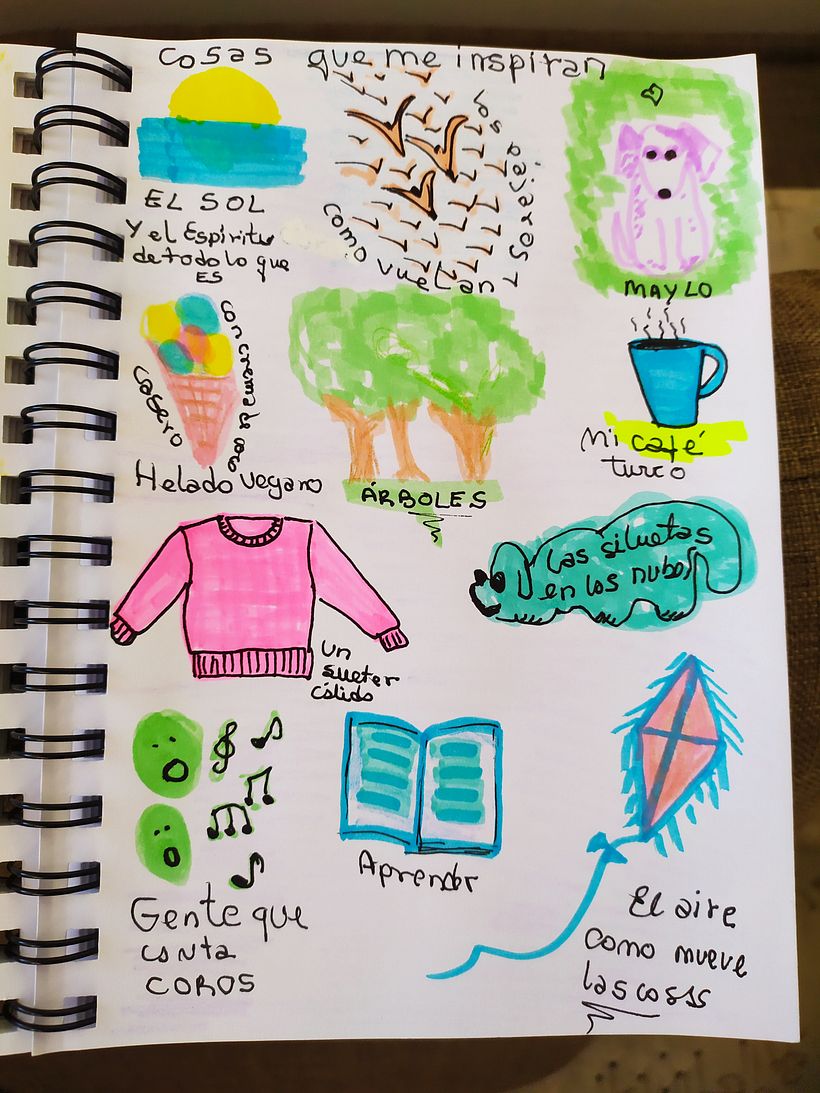 cosas que me inspiran
EL SOL
Y el Espíritu
de todo lo que
ES
como vuelan
MAYLO
Casero
con crema de coco
Helado vegano
ÁRBOLES
Mi café
turco
Un
sueter
cálido
Las siluetas
en las nubes
Gente que
canta
COROS
Aprender
El aire
como mueve
las cosas